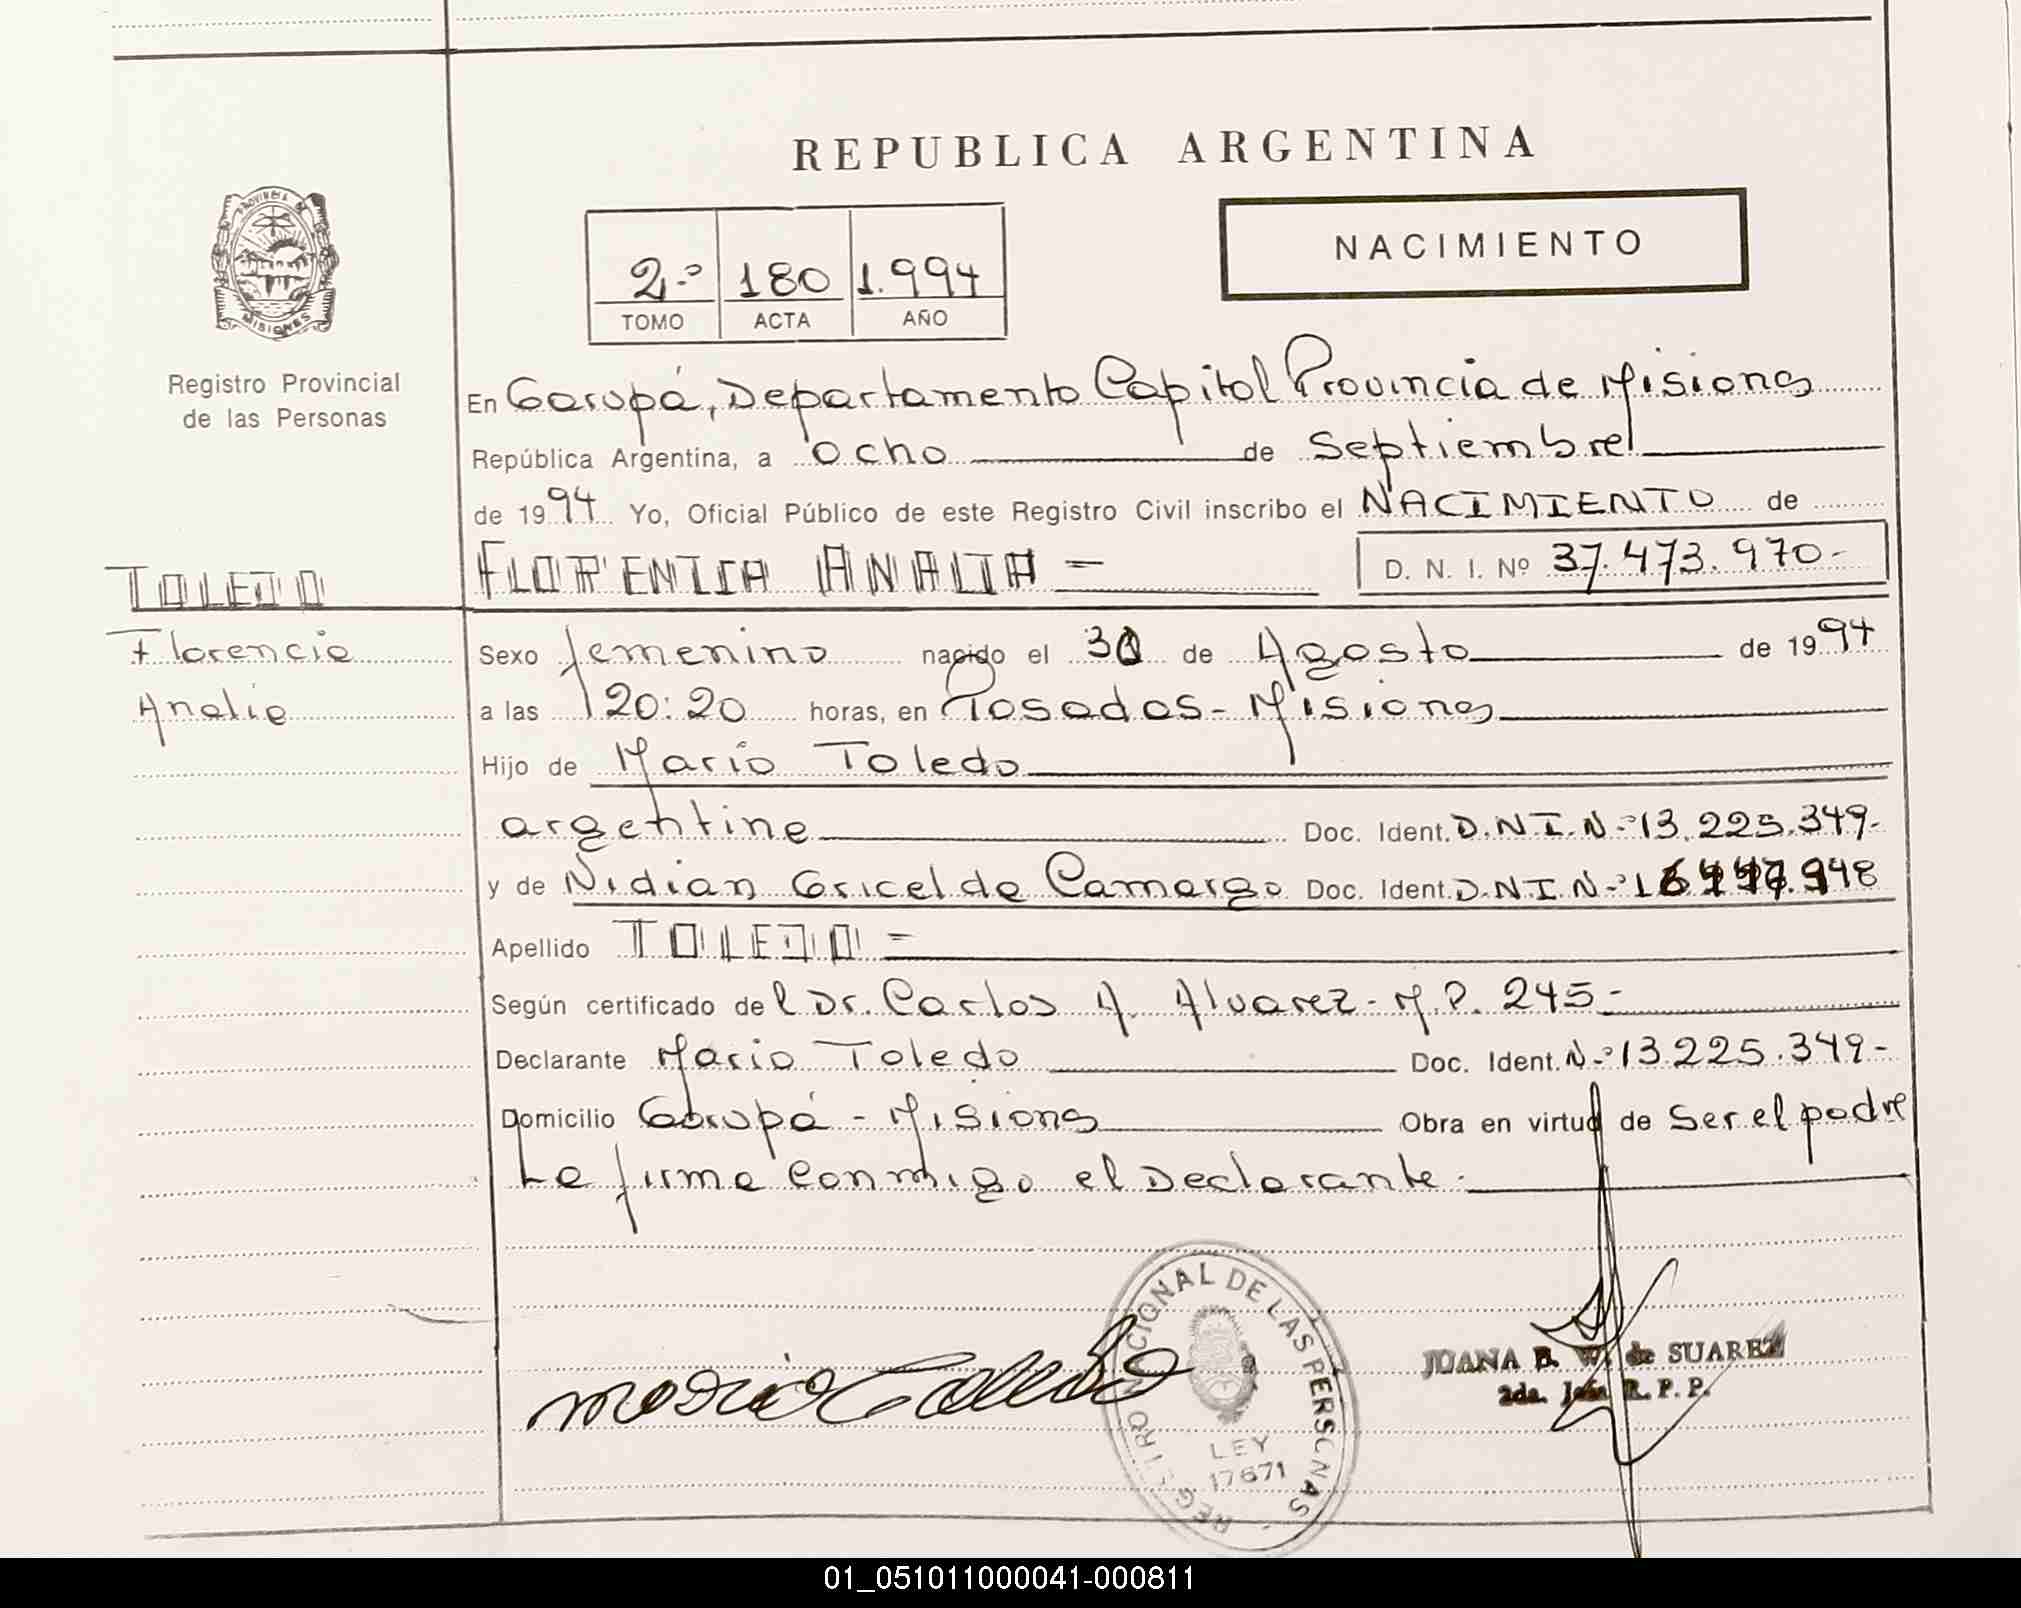 REPUBLICA ARGENTINA
PROVINCIA DE
MISIONES
Registro Provincial
de las Personas
2º 180 1.994
TOMO ACTA AÑO
NACIMIENTO
En Garupá, Departamento Capital Provincia de Misiones
República Argentina, a ocho de Septiembre
de 1994 Yo, Oficial Público de este Registro Civil inscribo el NACIMIENTO de
TOLEDO
FLORENCIA ANALIA = D. N. I. Nº 37.473.970-
Florencia
Analia
Sexo femenino nacido el de Agosto de 1994
a las 20:20 horas, en Posadas - Misiones
Hijo de Mario Toledo
argentina Doc. Ident. D.N.I.Nº 13.225.349-
y de Nidian Gricelda Camargo Doc. Ident. D.N.I.Nº
Apellido TOLEDO =
Según certificado del Dr. Carlos A. Alvarez - M.P. 245-
Declarante Mario Toledo Doc. Ident. Nº 13.225.349-
Domicilio Garupá - Misiones Obra en virtud de Ser el padre
La firma conmigo el Declarante.
Mario Toledo
REGISTRO NACIONAL DE LAS PERSONAS
LEY
17671
JUANA B. W. de SUAREZ
2da. Jefa R. P. P.
01_051011000041-000811